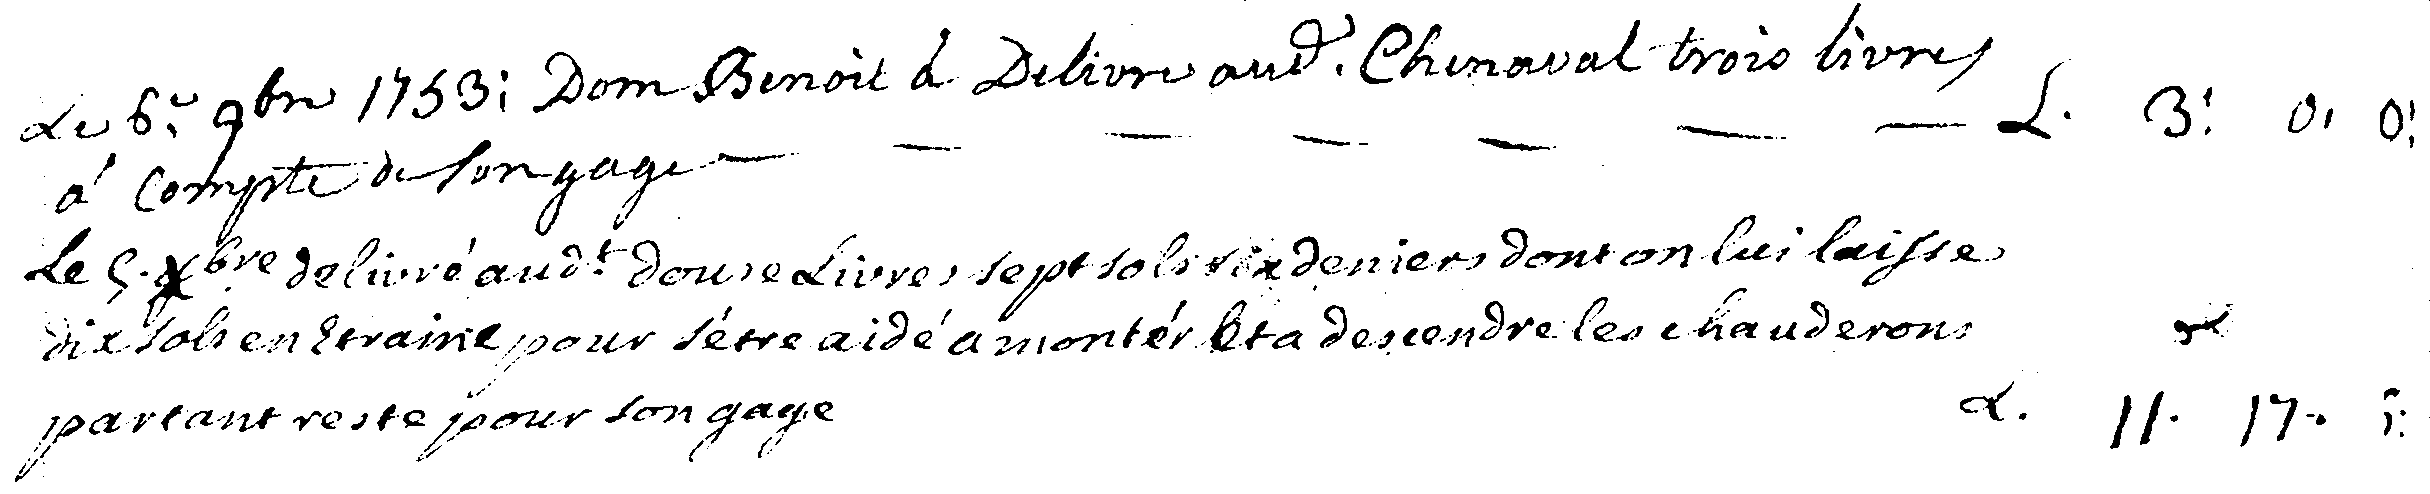 Le 6.e 9bre 1753: Dom Benoit à Delivré aud.t Chenaval trois livres L. 3: 0, 0:
à Compte de son gage
Le 5. xbre delivré aud.t douse Livres sept sols six deniers dont on lui laisse
dix sols en Etraine pour s'étre aidé a montér et a descendre les chauderons
partant reste pour son gage L. 11. 17.